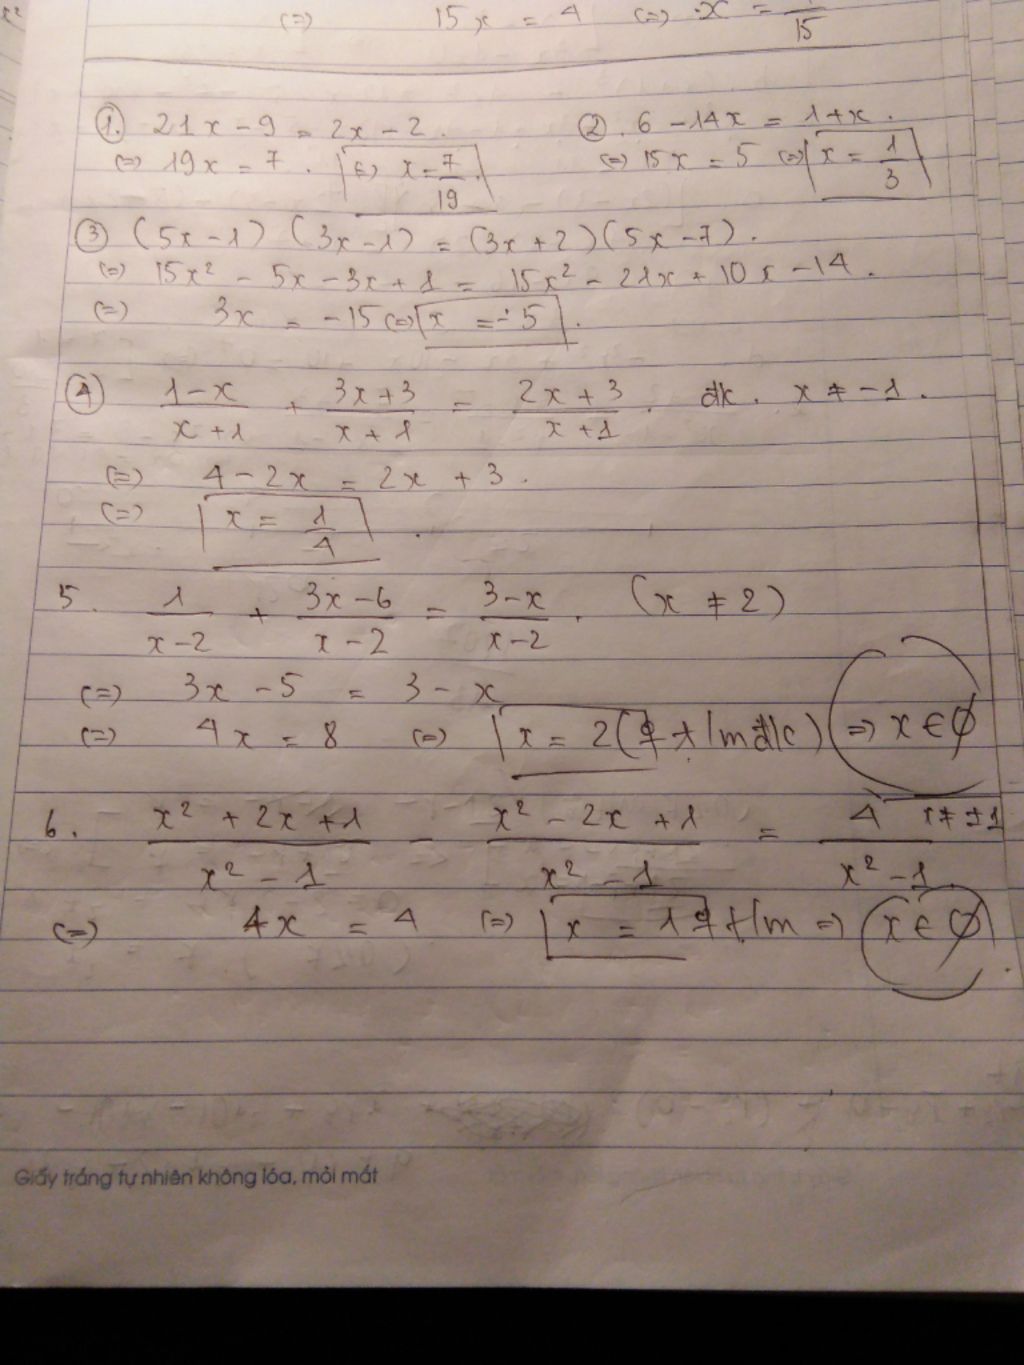 (=) 15x = 4 (=) x = /15
①. 21x - 9 = 2x - 2.
(=) 19x = 7. (=) x = 7/19
②. 6 - 14x = 1 + x.
(=) 15x = 5 (=) x = 1/3
③ (5x - 1) (3x - 1) = (3x + 2)(5x - 7).
(=) 15x² - 5x - 3x + 1 = 15x² - 21x + 10x - 14.
(=) 3x = -15 (=) x = -5.
④ (1-x)/(x+1) + (3x+3)/(x+1) = (2x+3)/(x+1). đk. x ≠ -1.
(=) 4 - 2x = 2x + 3.
(=) x = 1/4.
5. 1/(x-2) + (3x-6)/(x-2) = (3-x)/(x-2). (x ≠ 2)
(=) 3x - 5 = 3 - x
(=) 4x = 8 (=) x = 2 ( t/m đk) => x ∈ ∅
6. (x² + 2x + 1)/(x² - 1) - (x² - 2x + 1)/(x² - 1) = 4/(x² - 1) x ≠ ±1
(=) 4x = 4 (=) x = 1 t/m => x ∈ ∅.
Giấy trắng tự nhiên không lóa, mỏi mắt